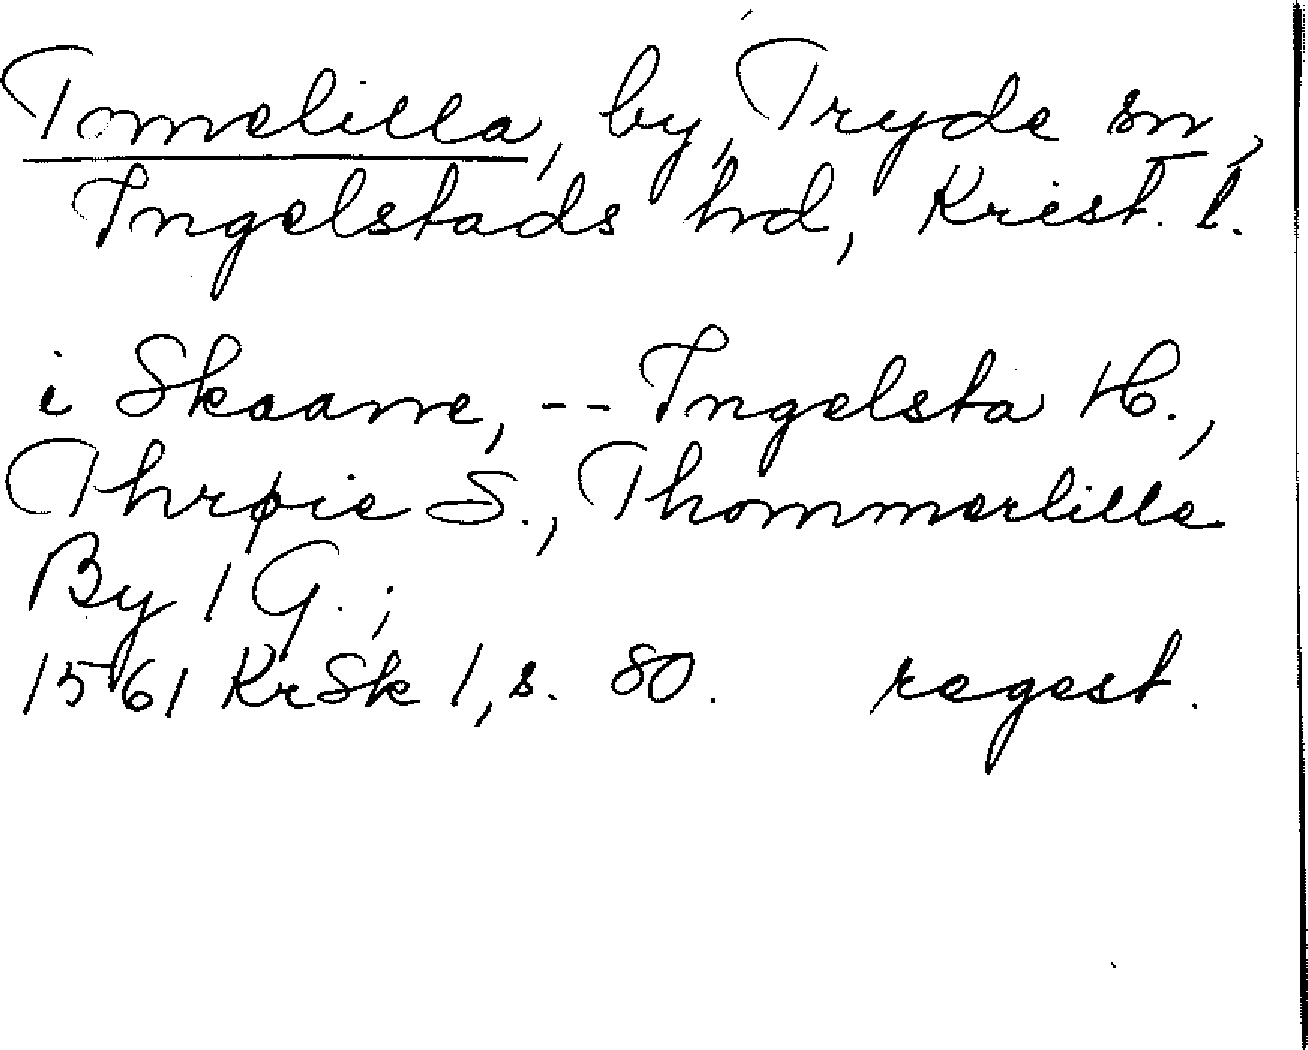 Tomelilla, by, Tryde sn,
Ingelstads hrd, Krist. l.
i Skaane, -- Ingelsta H.,
Thrøie S., Thommerlille
By 1 G.;
1561 KrSk 1, s. 80. regest.